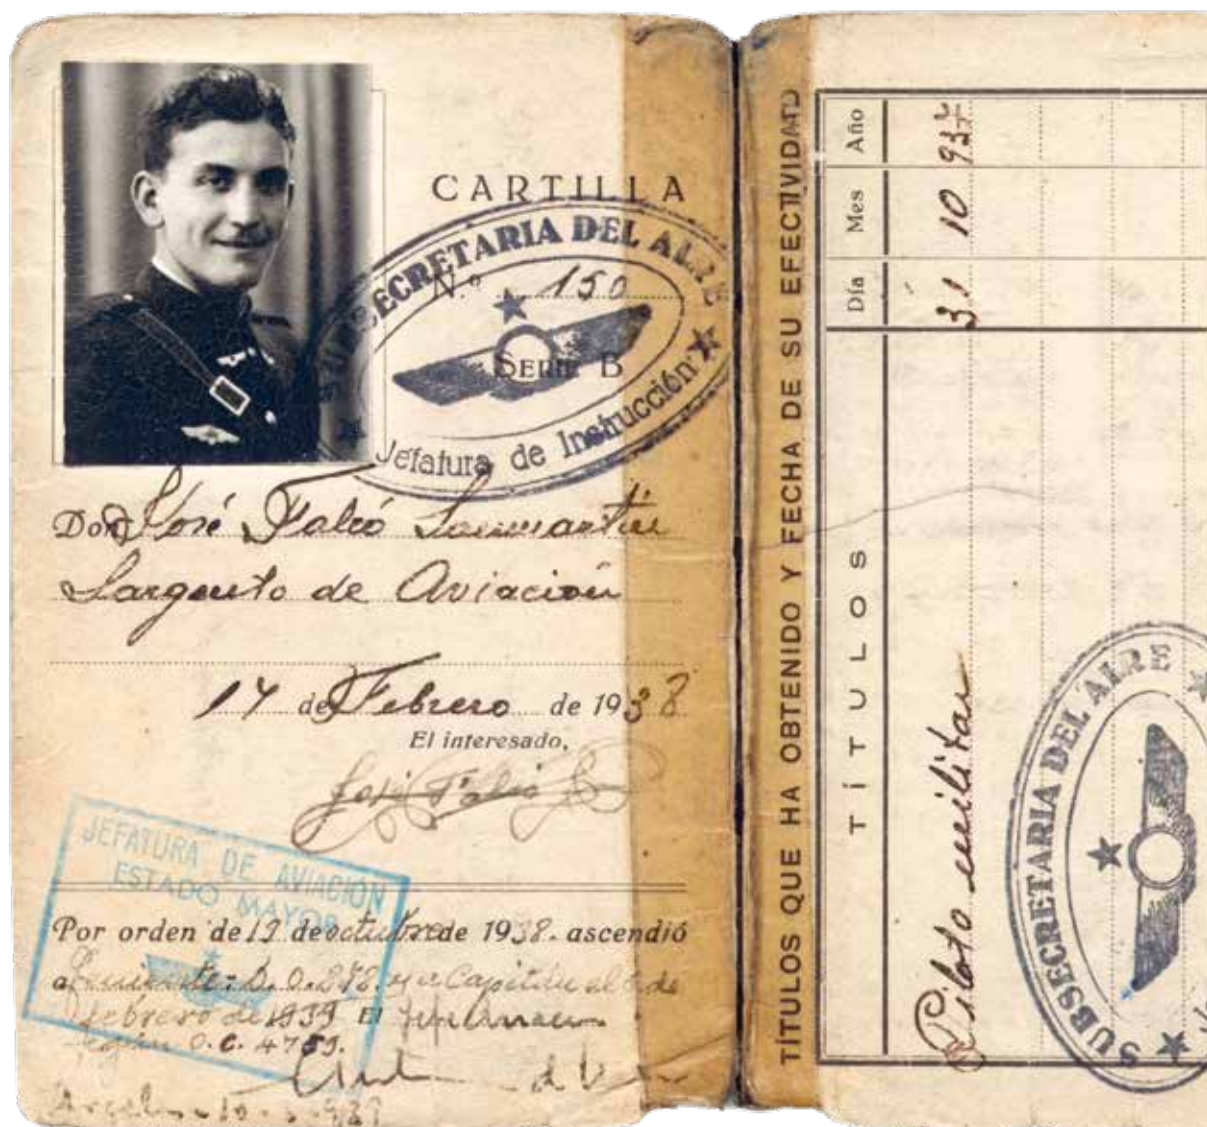 CARTILLA
N.º 150
SERIE B
SUBSECRETARIA DEL AIRE
Jefatura de Instrucción
Don José Falcó Sanmartín
Sargento de Aviación
17 de Febrero de 1938
El interesado,
José Falcó S
JEFATURA DE AVIACIÓN
ESTADO MAYOR
Por orden de 19 de octubre de 1938. ascendió
a Teniente - D. O. 272. y a Capitán al 6 de
Febrero de 1939 El
según O. C. 4759.
TÍTULOS QUE HA OBTENIDO Y FECHA DE SU EFECTIVIDAD
TÍTULOS
Día
Mes
Año
Piloto militar
31 10 937
SUBSECRETARIA DEL AIRE